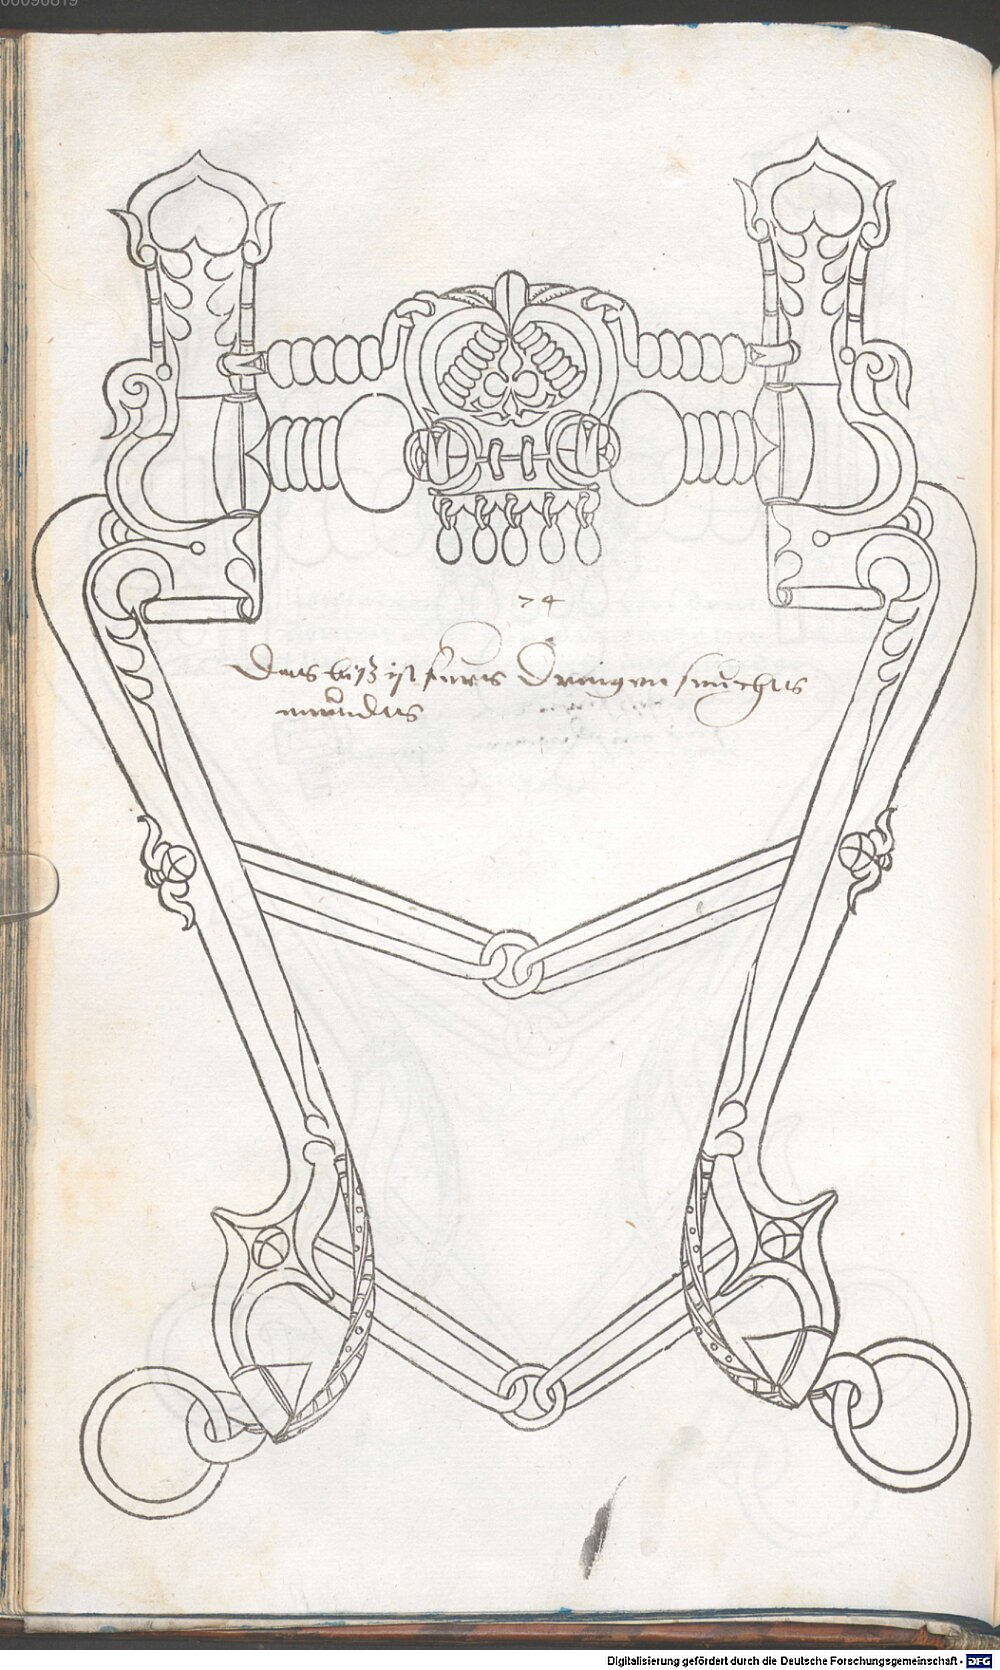 00090819
74
Das biß ist fürs Dringen seuchts
mundts
Digitalisierung gefördert durch die Deutsche Forschungsgemeinschaft - DFG